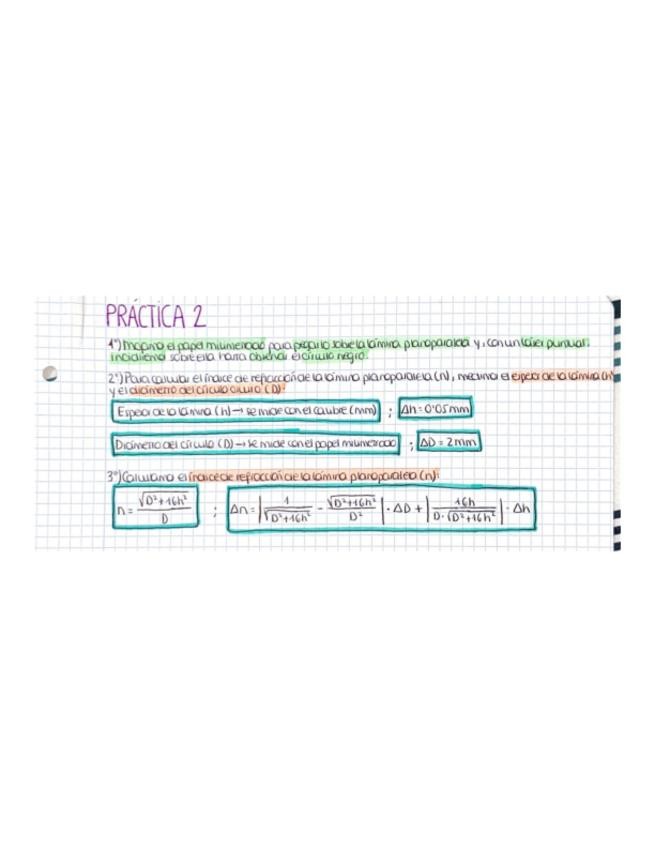 PRÁCTICA 2
1º) Mojamo el papel milimetrado para pegarlo sobre la lámina planoparalela y, con un láser puntual,
incidiremo sobre ella hasta obtener el círculo negro.
2º) Para calcular el índice de refracción de la lámina planoparalela (n), medimo el espesor de la lámina (h)
y el diámetro del círculo oscuro (D):
Espesor de la lámina (h) → se mide con el calibre (mm) ; Δh = 0'05mm
Diámetro del círculo (D) → se mide con el papel milimetrado ; ΔD = 2mm
3º) Calculamo el índice de refracción de la lámina planoparalela (n):
n = √D²+16h² / D ; Δn = | 1 / √D²+16h² - √D²+16h² / D² | · ΔD + | 16h / D·√D²+16h² | · Δh